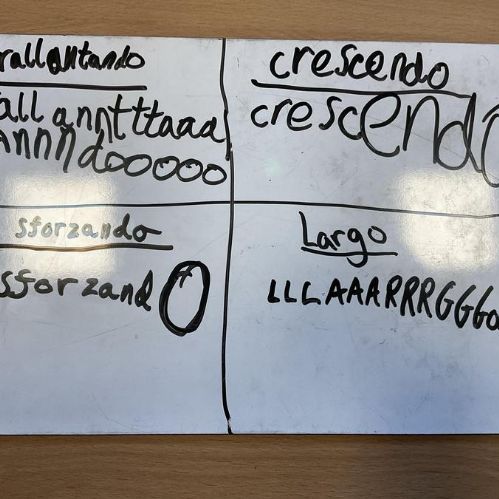 rallantando
allannttaaa
Annndooooo
crescendo
crescendo
sforzando
sforzandO
Largo
LLLAAARRRGGGo